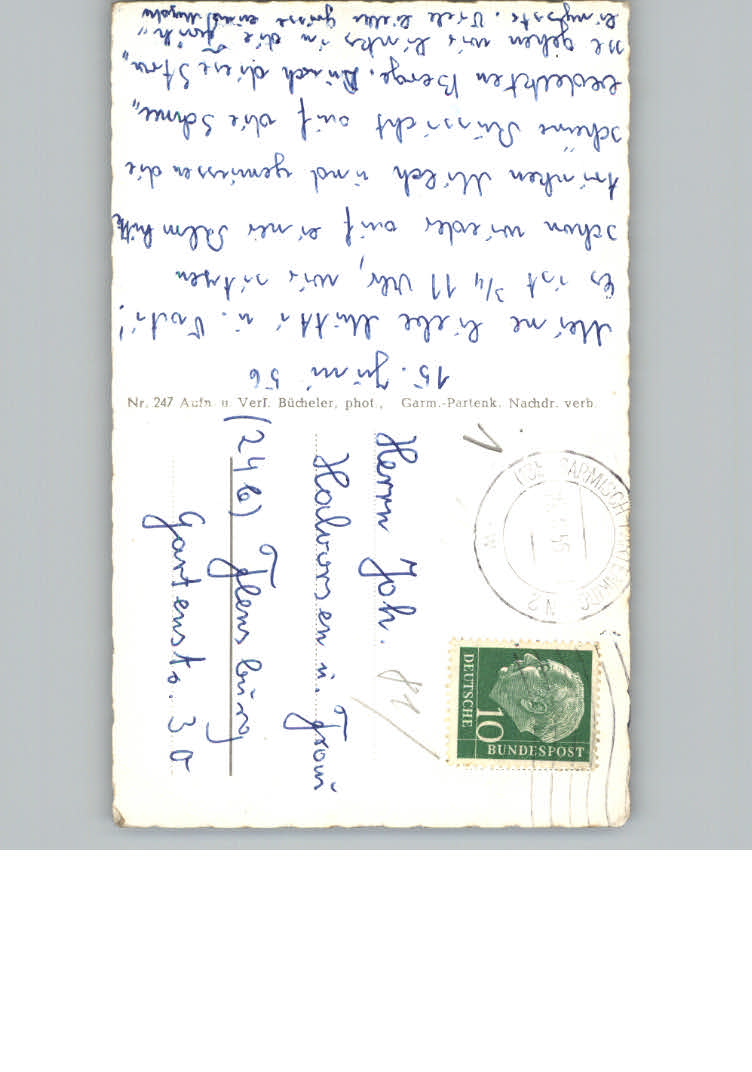 15. Juni 56
Meine liebe Mutti u. Vati!
Es ist 3/4 11 Uhr, wir sitzen
schon wieder auf einer
trinken Milch und geniessen die
schöne Aussicht auf die Schnee„
bedeckten Berge. Durch diese Stra„
sse gehen wir links in die
Viele liebe Grüsse
Nr. 247 Aufn. u. Verl. Bücheler, phot., Garm.-Partenk. Nachdr. verb.
Herrn Joh.
Halvorsen u. Frau
(24b) Flensburg
Gartenstr. 30
1
81
GARMISCH-PARTENKIRCHEN 2
DEUTSCHE
BUNDESPOST
10